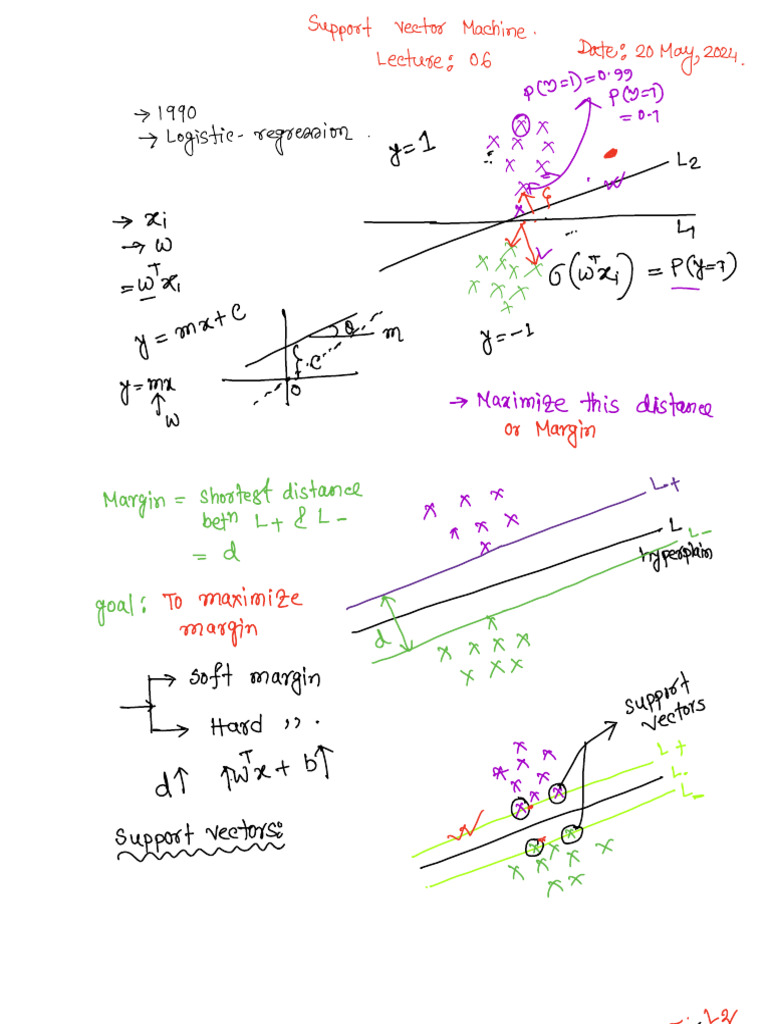 Support vector Machine.
Lecture: 06
Date: 20 May, 2024.
→ 1990
→ Logistic-regression.
P(y=1)=0.99
P(y=1)
= 0.7
y=1
L2
L1
→ xi
→ w
= wᵀxi
σ(wᵀxi) = P(y=1)
y = mx+c
θ
m
c
0
y=-1
y=mx
↑
w
→ Maximize this distance
or Margin
Margin = shortest distance
betⁿ L+ & L-
= d
L+
L
L-
hyperplain
d
goal: To maximize
margin
→ Soft margin
→ Hard ,, .
support
vectors
d↑ ↑wᵀx + b↑
L+
L
L-
Support vectors:
L2